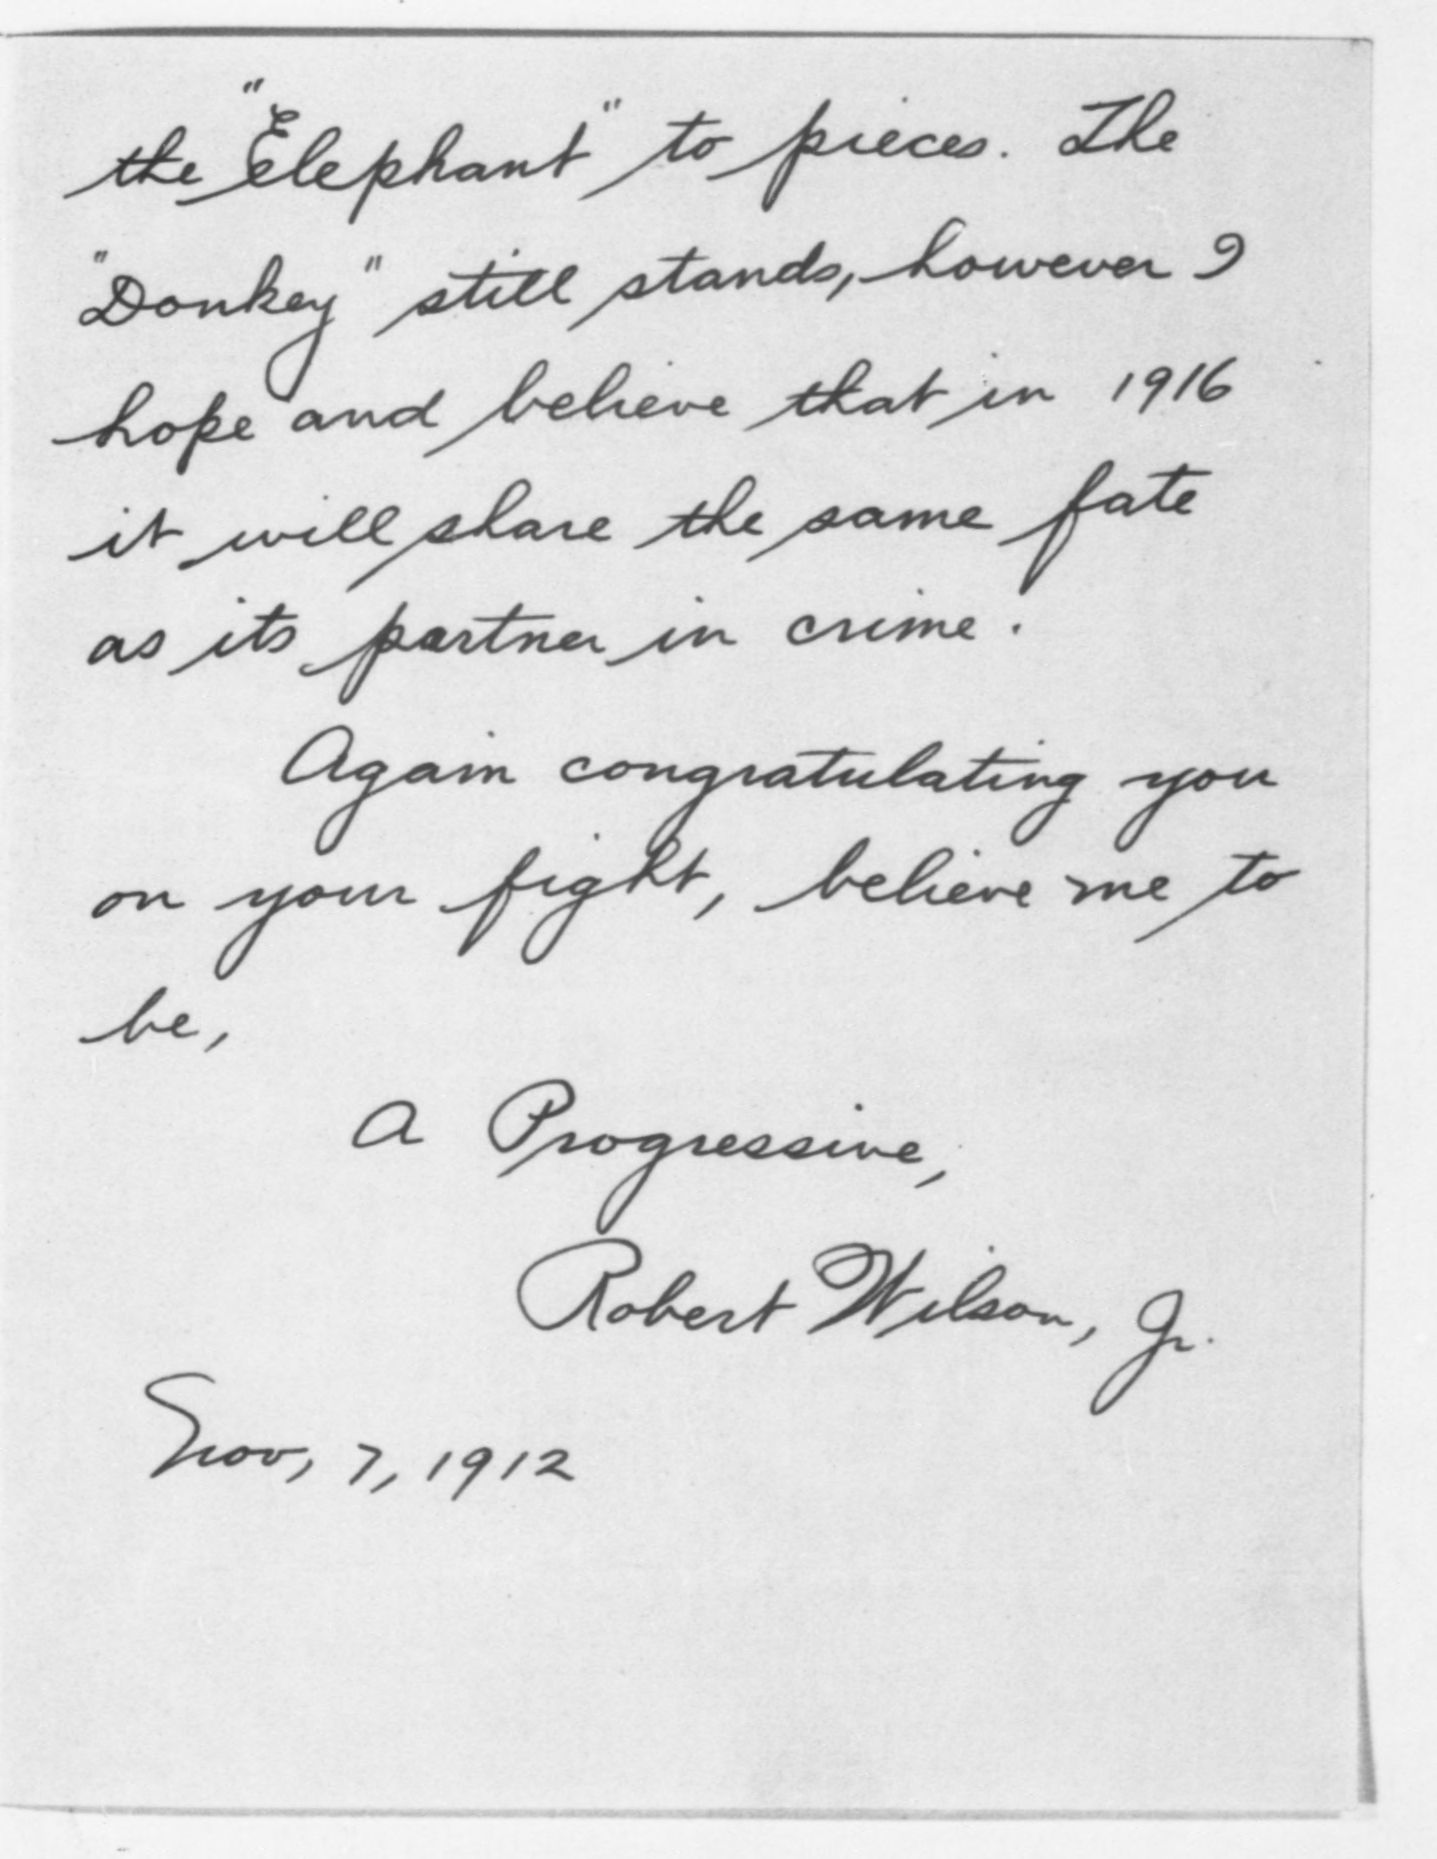 the "Elephant" to pieces. The
"Donkey" still stands, however I
hope and believe that in 1916
it will share the same fate
as its partner in crime.
Again congratulating you
on your fight, believe me to
be,
A Progressive,
Robert Wilson, Jr.
Nov, 7, 1912